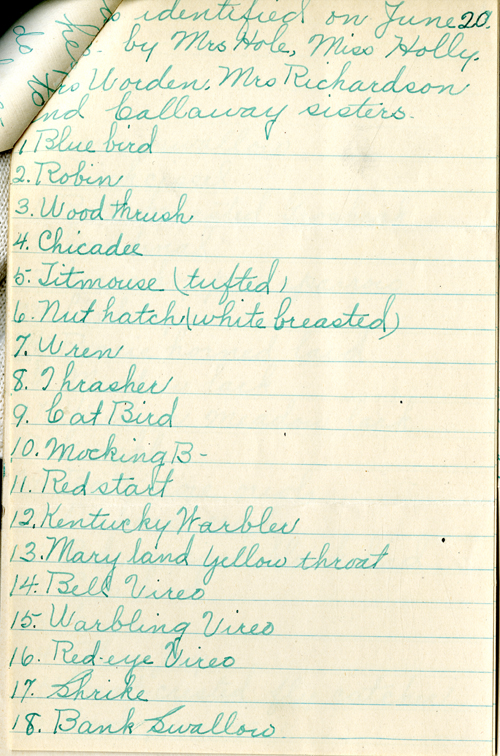 identified on June 20.
by Mrs Hole, Miss Holly,
Worden, Mrs Richardson
nd Callaway sisters.
1. Blue bird
2. Robin
3. Wood thrush
4. Chicadee
5. Titmouse (tufted)
6. Nut hatch (white breasted)
7. Wren
8. Thrasher
9. Cat Bird
10. Mocking B-
11. Redstart
12. Kentucky Warbler
13. Mary land yellow throat
14. Bell Vireo
15. Warbling Vireo
16. Red-eye Vireo
17. Shrike
18. Bank Swallow